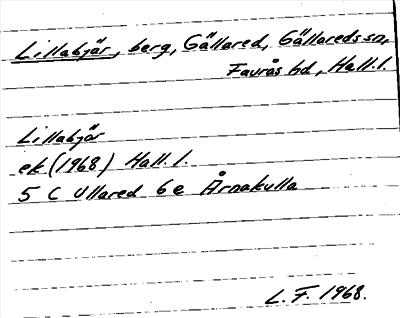 Lillabjär, berg, Gällared, Gällareds sn,
Faurås hd, Hall. l.
Lillabjär
ek (1968) Hall. l.
5 C Ullared 6e Årnakulla
L. F. 1968.